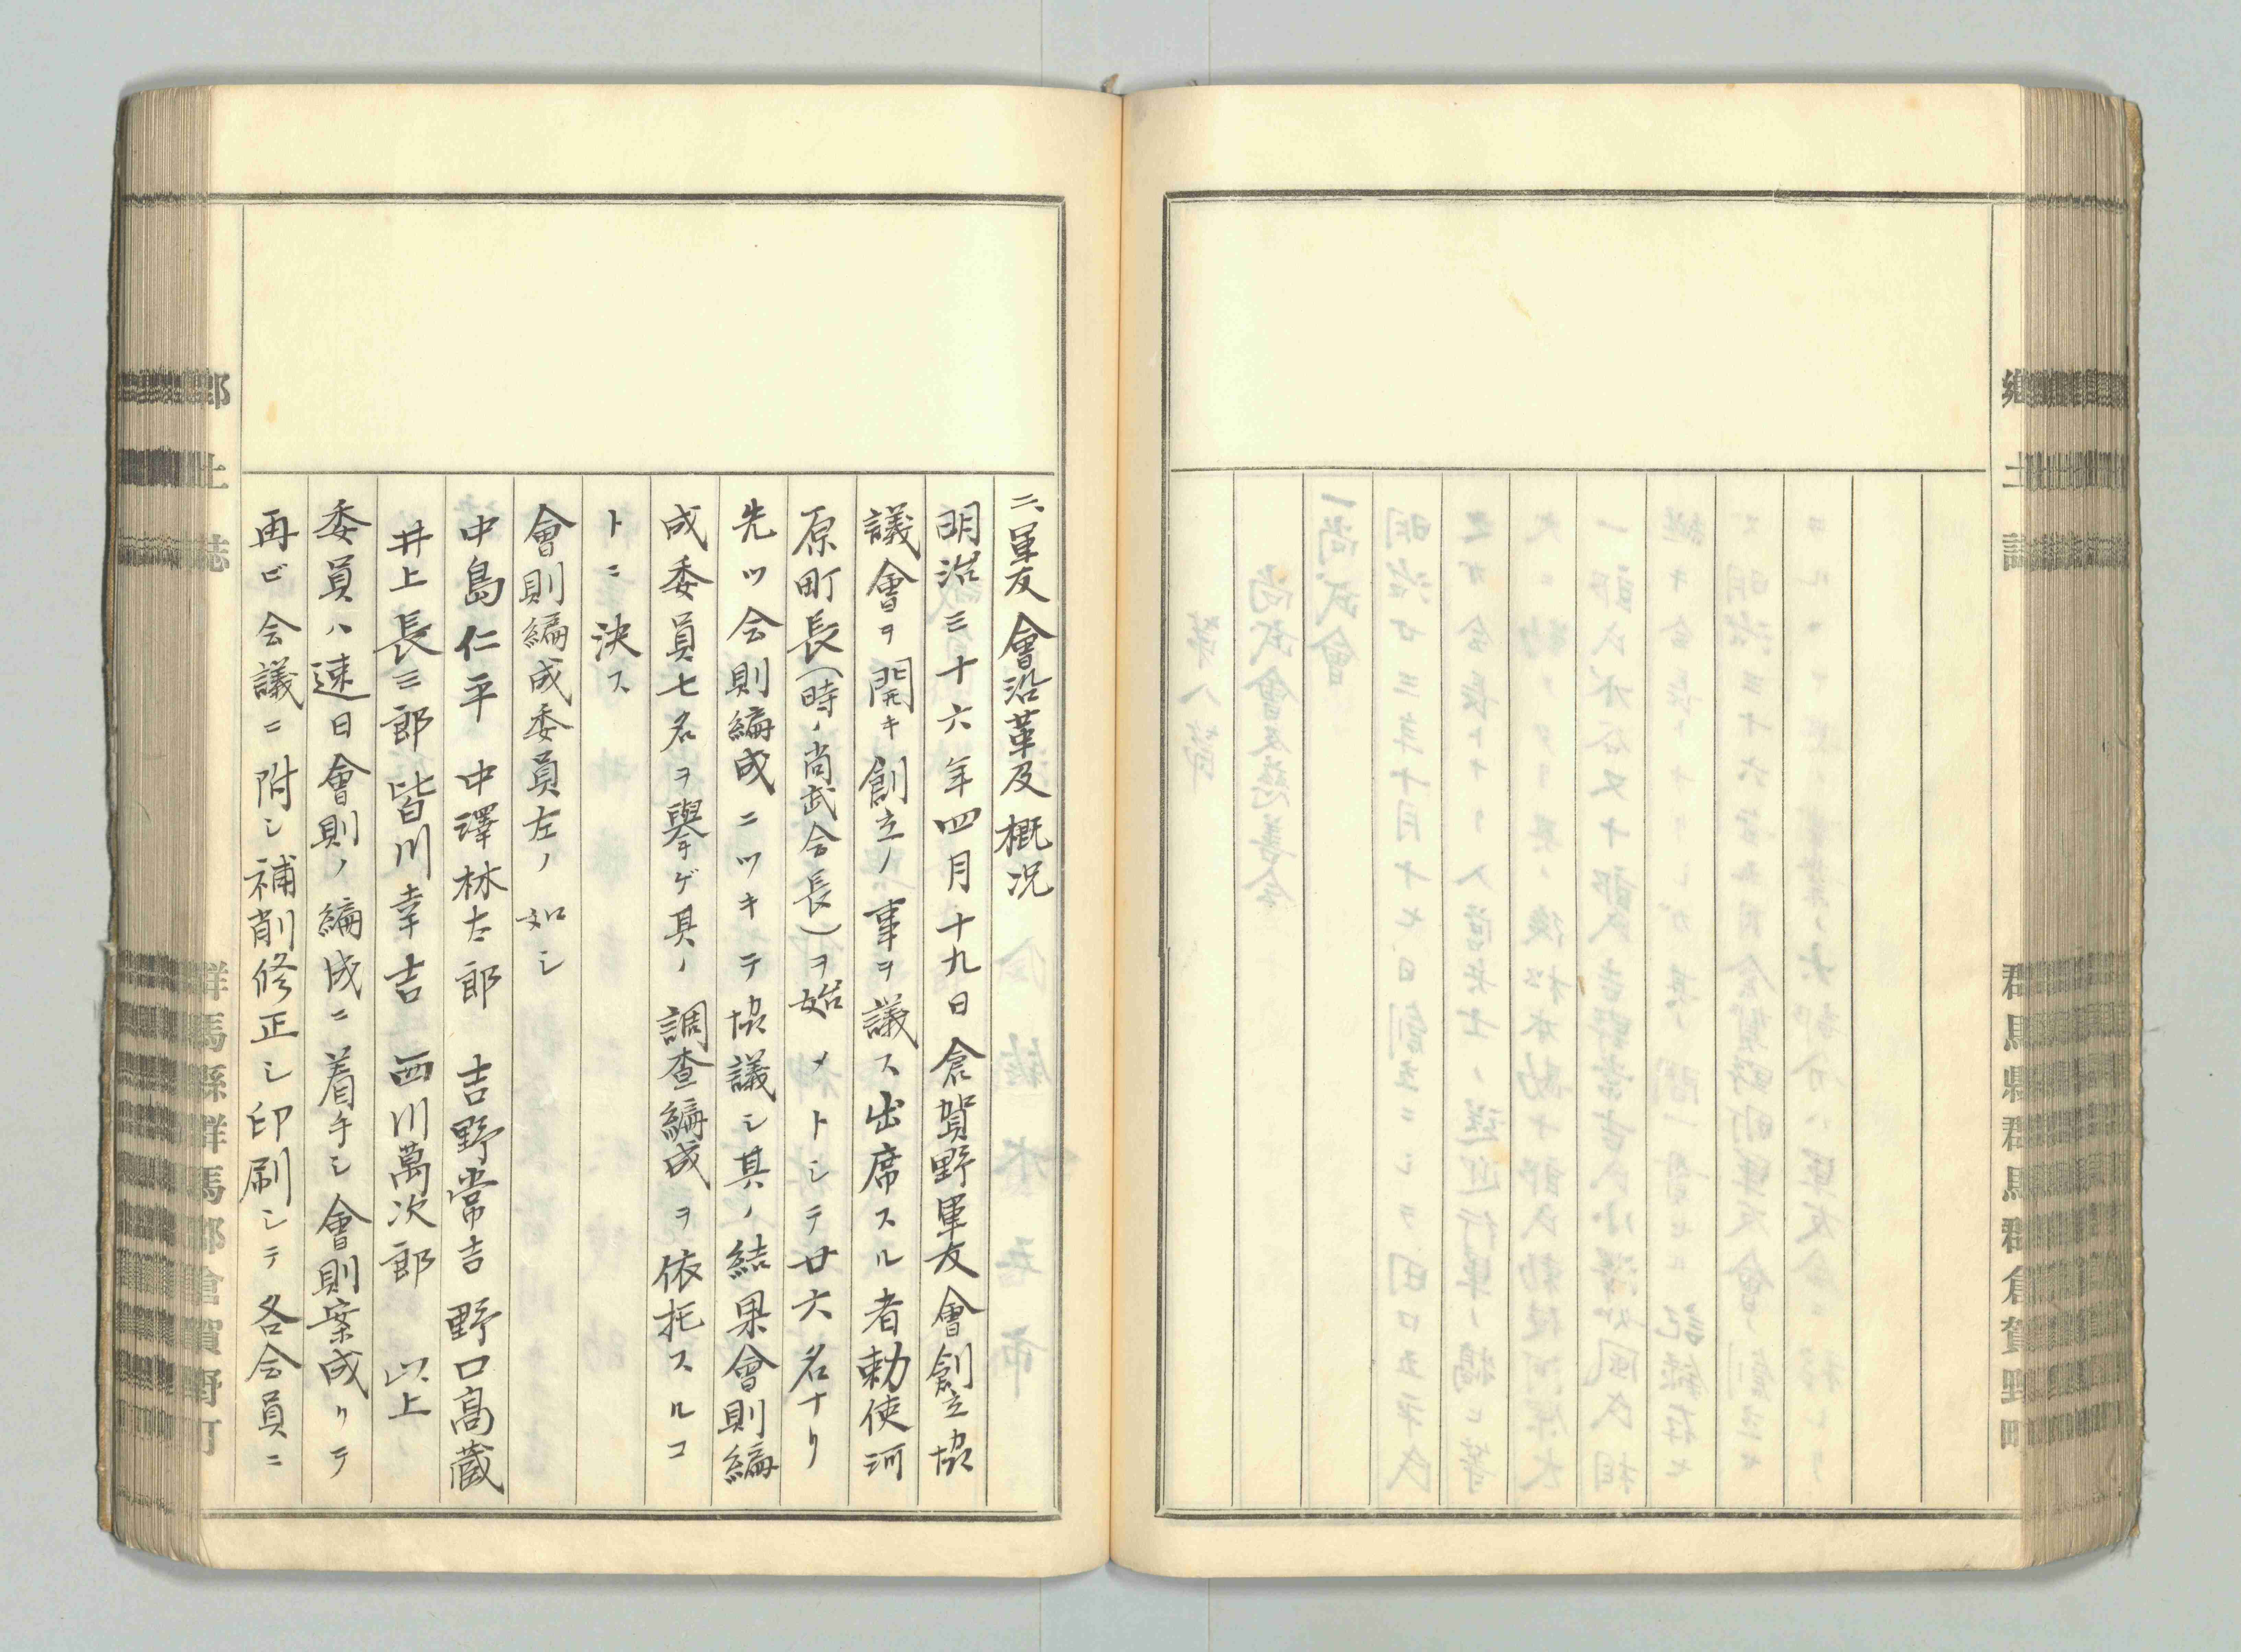 郷土誌
群馬縣群馬郡倉賀野町
二、軍友會沿革及概況
明治三十六年四月十九日倉賀野軍友會創立協
議會ヲ開キ創立ノ事ヲ議ス出席スル者勅使河
原町長(時ノ尚武会長)ヲ始メトシテ廿六名ナリ
先ツ会則編成ニツキテ協議シ其ノ結果會則編
成委員七名ヲ擧ゲ其ノ調査編成ヲ依托スルコ
トニ決ス
會則編成委員左ノ如シ
中島仁平 中澤林太郎 吉野常吉 野口高蔵
井上長三郎 皆川幸吉 西川萬次郎 以上
委員ハ速日會則ノ編成ニ着手シ會則案成リテ
再ビ会議ニ附シ補削修正シ印刷シテ各会員ニ
郷土誌
群馬縣群馬郡倉賀野町